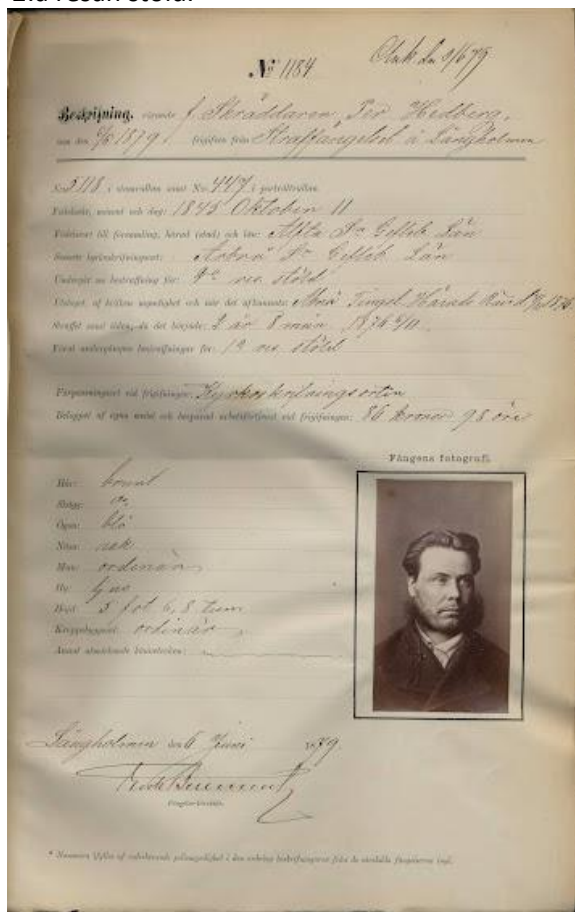 № 1184
Beskrifning, rörande f. Skräddaren Per Hedberg,
som den 6/6 1879 frigifven från Straffängelset å Långholmen
No 5118 i stamrullan samt No 447 i porträttrullan.
Födelseår, månad och dag: 1845 Oktober 11
Födelseort till församling, härad (stad) och län: Alfta Sn Gefleb. Län
Senaste kyrkoskrifningsort: Arbrå Sn Gefleb. Län
Undergått nu bestraffning för: 2a res. stöld
Utslaget af hvilken myndighet och när det afkunnats: Tingsl. Härads Rätt 1876
Straffet samt tiden, då det började: 2 år 8 mån 1876
Förut undergångna bestraffningar för: 1a res. stöld
Förpassningsort vid frigifningen: Kyrkoskrifningsorten
Beloppet af egna medel och besparad arbetsförtjenst vid frigifningen: 86 kronor 98 öre
Fångens fotografi.
Hår: brunt
Skägg:
Ögon: blå
Näsa: rak
Mun: ordinär
Hy: ljus
Höjd: 5 fot 6,8 tum
Kroppsbyggnad: ordinär
Annat utmärkande kännetecken:
Långholmen den 6 Juni 1879.